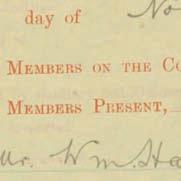 day of No
MEMBERS ON THE CO
MEMBERS PRESENT,
Mr. Wm. Ha